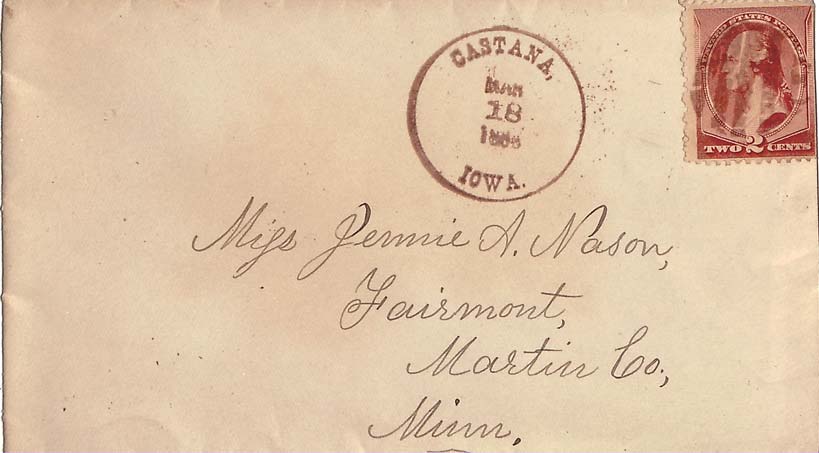 CASTANA,
MAR
18
IOWA.
UNITED STATES POSTAGE
TWO 2 CENTS
Miss Jennie A. Nason,
Fairmont,
Martin Co.,
Minn.